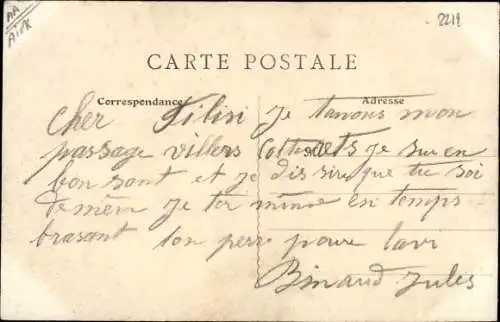 AA
AIX
2212
CARTE POSTALE
Correspondance
Adresse
cher Filisi je tanous mon
passage villers Cotterets je suis en
bon sant et je dissire que tu soi
de mêm je ter mine en temps
brasant ton pere pour lavi
Binaud Jules